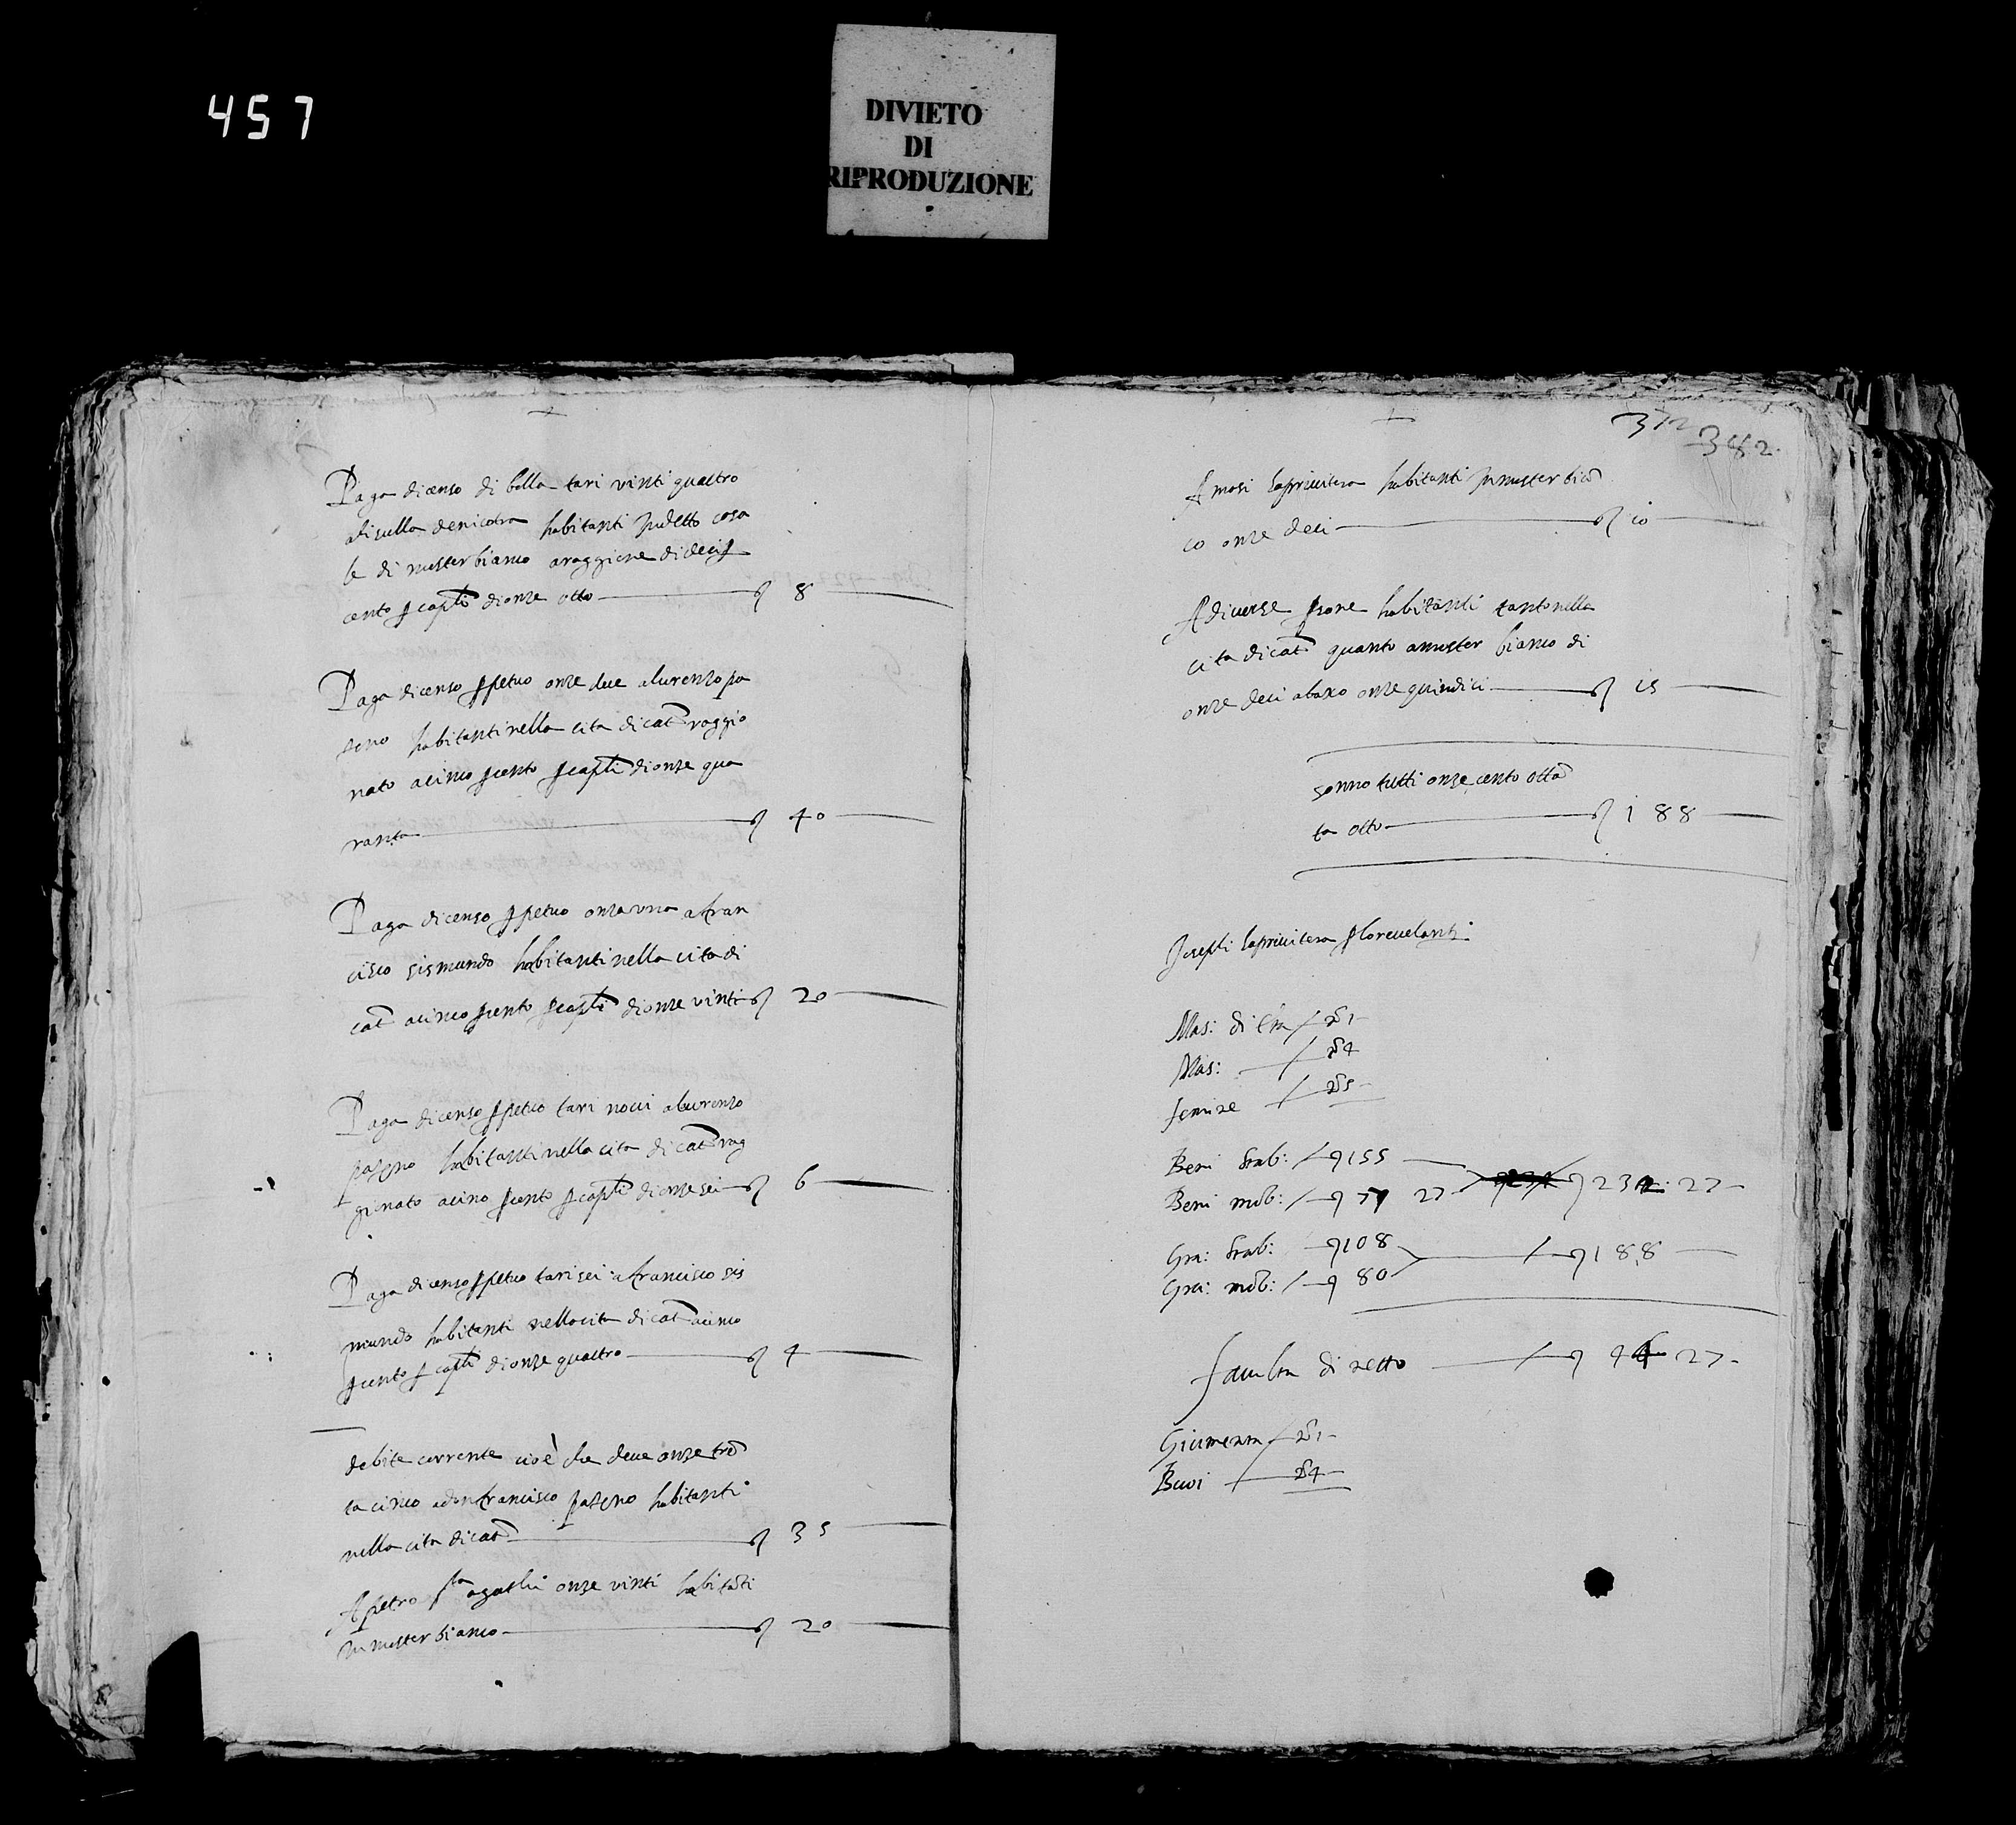 457
DIVIETO
DI
RIPRODUZIONE
Paga di censo di bolla tari vinti quattro
di sulla de nicotra habitanti in detto casa
le di musterbianco a raggione di deci p
cento p capli di onze otto ꝯ 8
Paga di censo ppetuo onze due a lurenzo pa
terno habitanti nella cita di cat raggio
nato a cinco p cento p capli di onze qua
ranta ꝯ 40
Paga di censo ppetuo onza una a fran
cisco sismundo habitanti nella cita di
cat a cinco p cento p capli di onze vinti ꝯ 20
Paga di censo ppetuo tari novi a lurenzo
paterno habitanti nella cita di cat rag
gionato a cinco p cento p capli di onze sei ꝯ 6
Paga di censo ppetuo tari sei a francisco sis
mundo habitanti nella cita di cat a cinco
p cento p capli di onze quattro ꝯ 4
debite corrente cioè che deve onze tren
ta cinco a don francisco paterno habitanti
nella cita di cat ꝯ 35
A petro sta agathi onze vinti habitanti
in musterbianco ꝯ 20
372 382
A masi la privitera habitanti in musterbian
co onze deci ꝯ 10
A diverse psone habitanti tanto nella
cita di cat quanto a muster bianco di
onze deci abaxo onze quindici ꝯ 15
sonno tutti onze cento ottan
ta otto ꝯ 188
Joseph la privitera p lo revelanti
Mas: di 1
Mas: 4
femine 5
Beni stab: ꝯ 155
Beni mob: ꝯ 77 27 ꝯ 232 27
Gra: stab: ꝯ 108
Gra: mob: ꝯ 80 ꝯ 188
facultà di netto ꝯ 44 27
Giumenta 1
Buoi 4